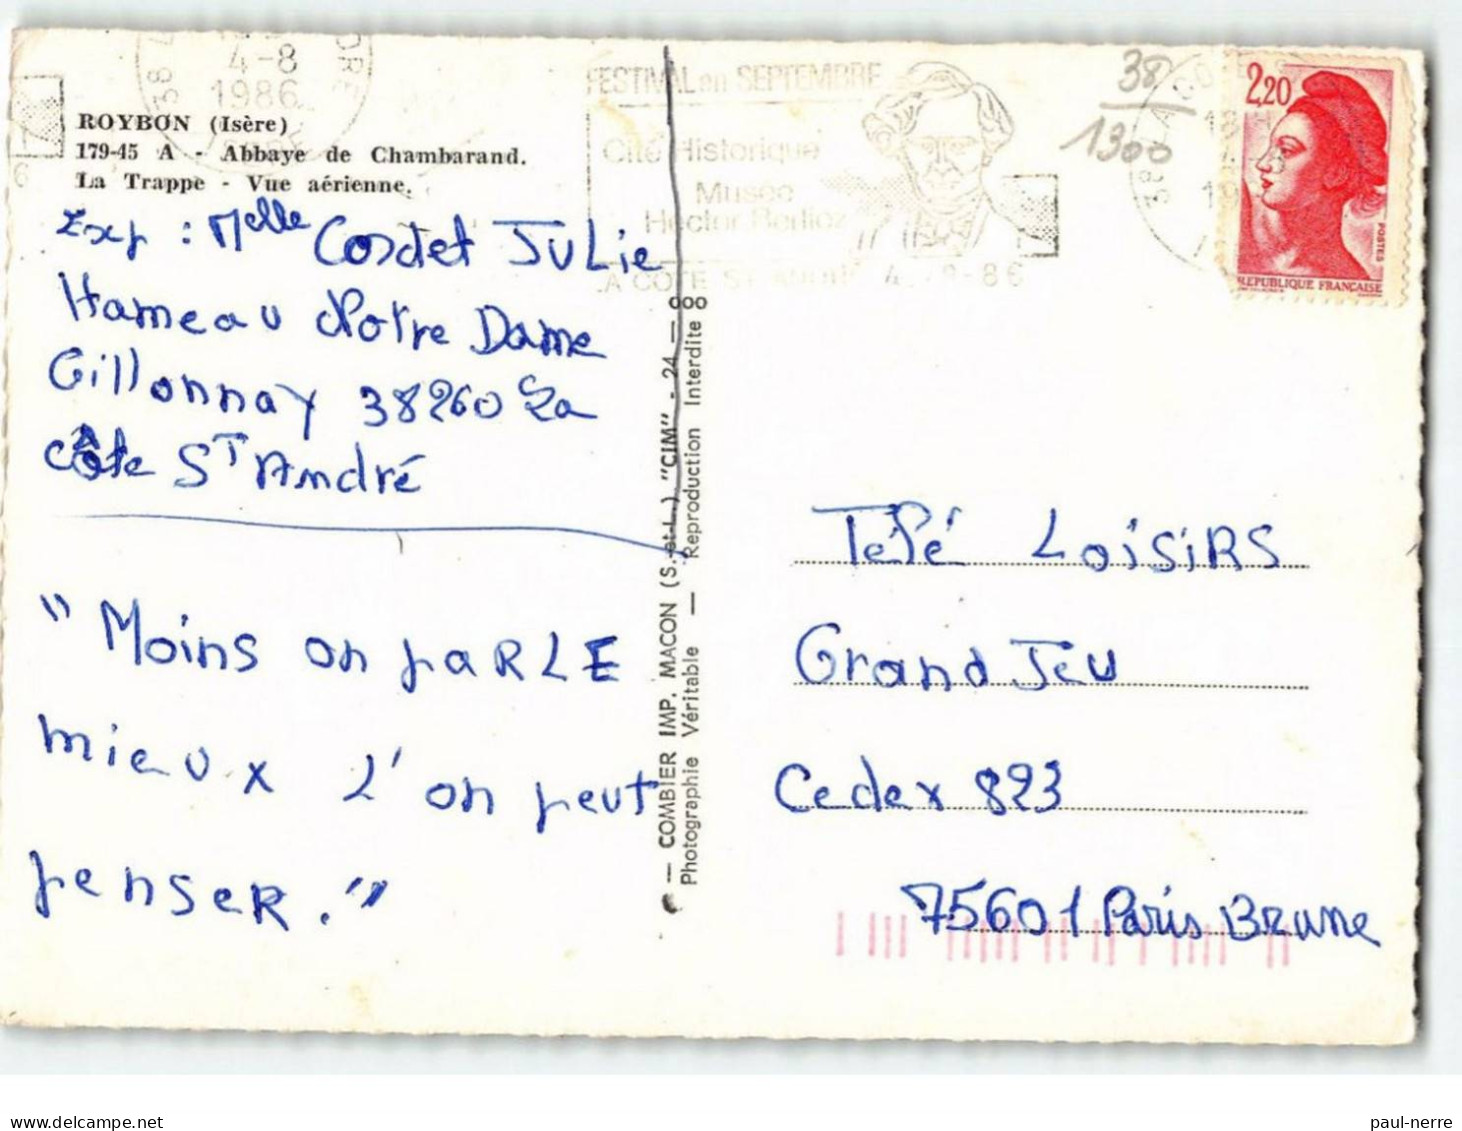 ROYBON (Isère)
179-45 A - Abbaye de Chambarand.
La Trappe - Vue aérienne.
4-8
1986
FESTIVAL en SEPTEMBRE
Cité Historique
Musée
Hector Berlioz
LA COTE ST ANDRE 4.-8-86
38
1300
2,20
POSTES
REPUBLIQUE FRANÇAISE
Exp : Melle Cordet JuLie
Hameau Notre Dame
Gillonnay 38260 La
Côte ST André
"Moins on paRLE
mieux L'on peut
penseR."
— COMBIER IMP. MACON (S.-et-L.) "CIM" - 24 —
Photographie Véritable — Reproduction Interdite
Télé LoisiRS
Grand Jeu
Cedex 823
75601 Paris Brune
paul-nerre